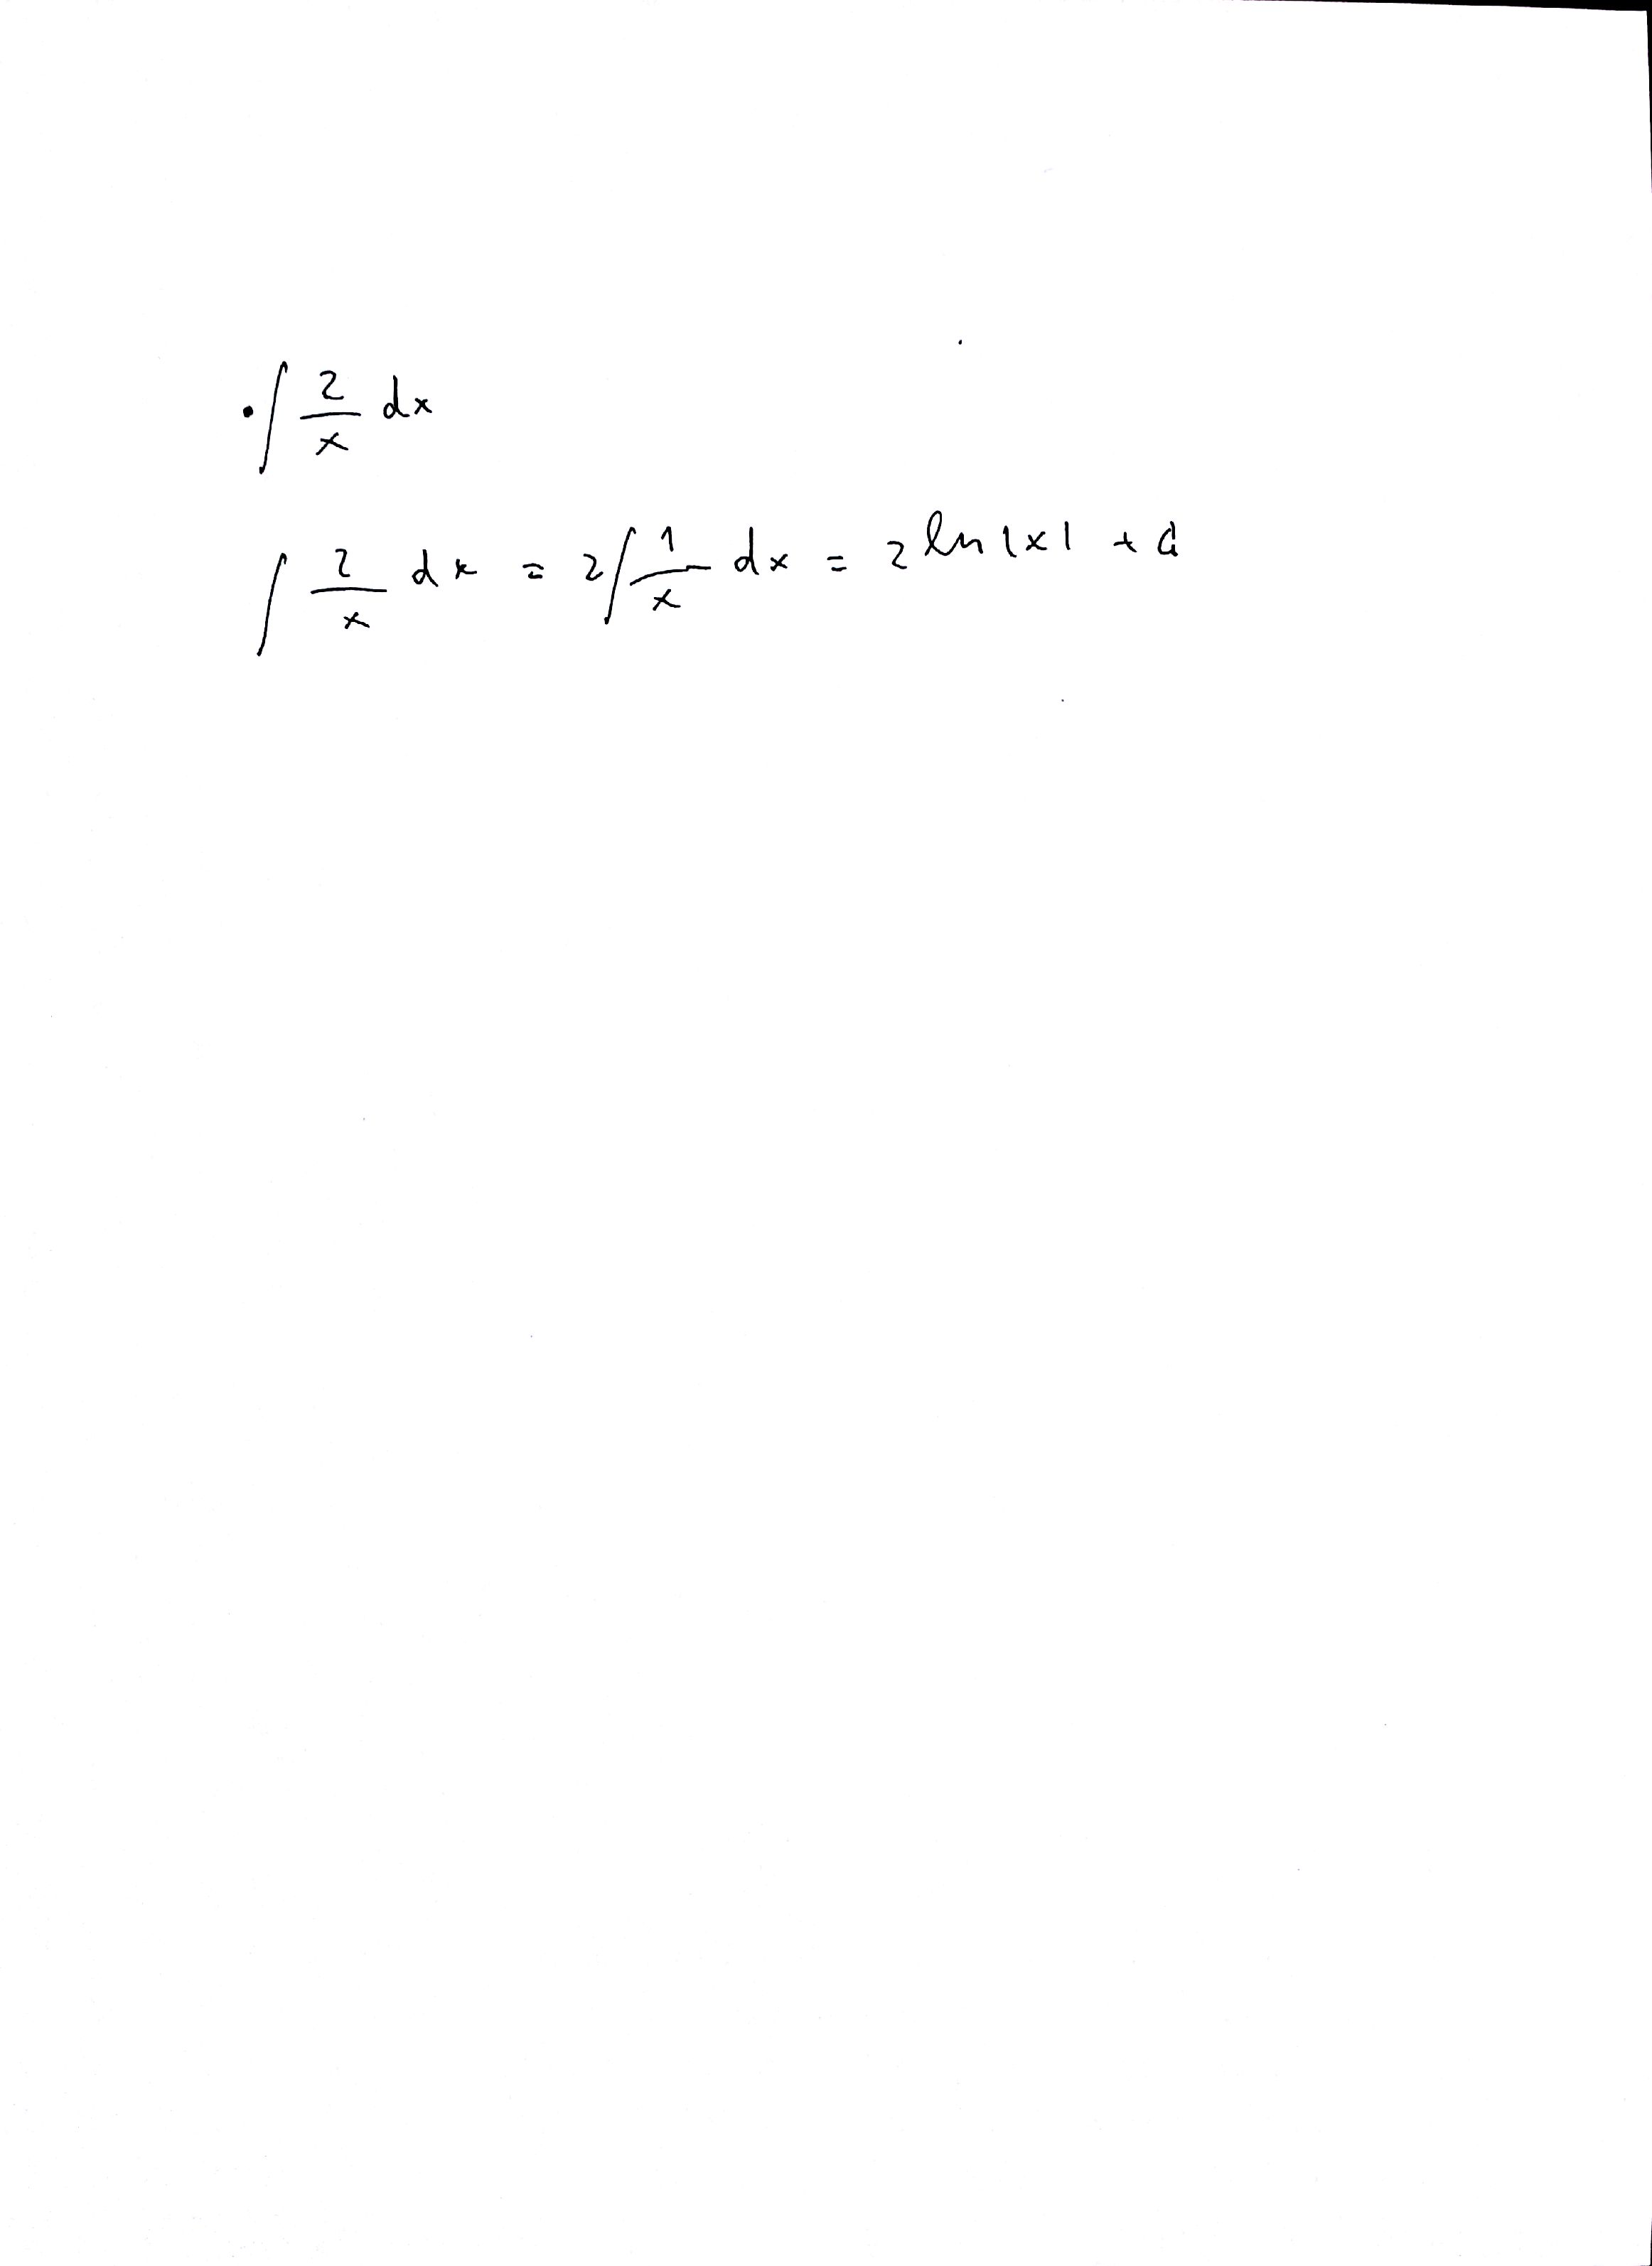 • ∫ 2/x dx
∫ 2/x dx = 2 ∫ 1/x dx = 2 ln |x| + C